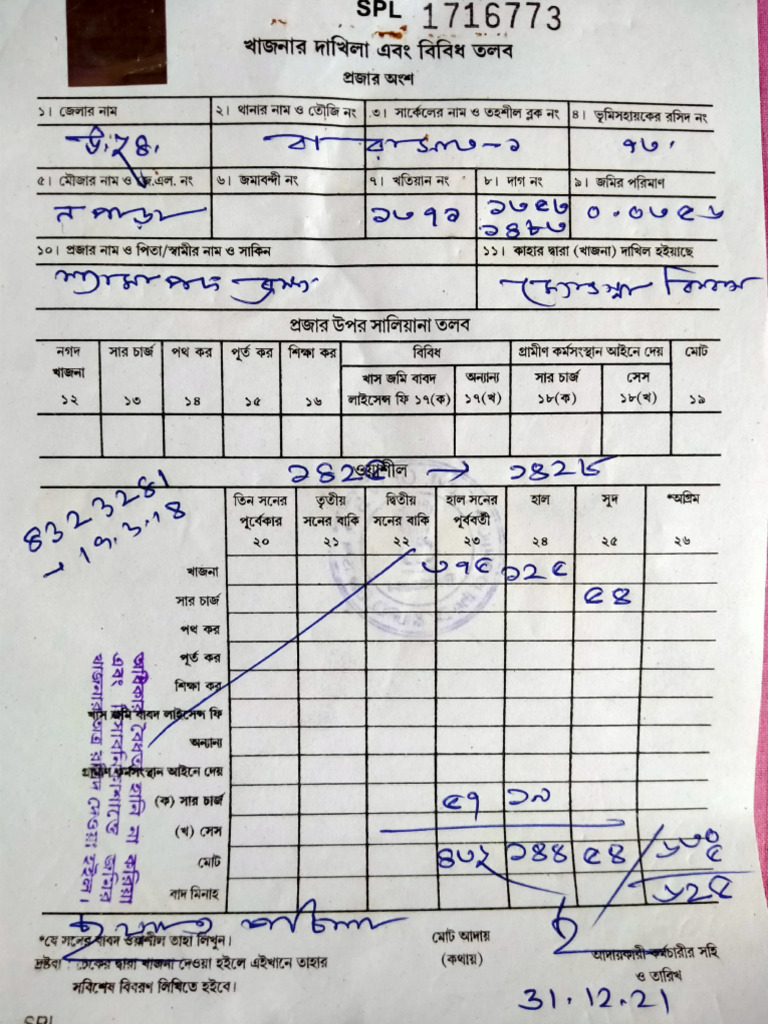 SPL 1716773
খাজনার দাখিলা এবং বিবিধ তলব
প্রজার অংশ
১। জেলার নাম ২। থানার নাম ও তৌজি নং ৩। সার্কেলের নাম ও তহশীল ব্লক নং ৪। ভূমিসহায়কের রসিদ নং
উঃ ২৪ বারাসাত-১ ৭৩
৫। মৌজার নাম ও জে.এল. নং ৬। জমাবন্দী নং ৭। খতিয়ান নং ৮। দাগ নং ৯। জমির পরিমাণ
ন পাড়া ১৩৭১ ১৩৫৩ ০.০৩৫৬
১৪৮৩
১০। প্রজার নাম ও পিতা/স্বামীর নাম ও সাকিন ১১। কাহার দ্বারা (খাজনা) দাখিল হইয়াছে
শ্যামা পদ
প্রজার উপর সালিয়ানা তলব
নগদ খাজনা সার চার্জ পথ কর পূর্ত কর শিক্ষা কর বিবিধ গ্রামীণ কর্মসংস্থান আইনে দেয় মোট
খাস জমি বাবদ অন্যান্য সার চার্জ সেস
১২ ১৩ ১৪ ১৫ ১৬ লাইসেন্স ফি ১৭(ক) ১৭(খ) ১৮(ক) ১৮(খ) ১৯
১৪২৫ ওয়াশীল → ১৪২৮
8323281
→ 19.3.18
তিন সনের তৃতীয় দ্বিতীয় হাল সনের হাল সুদ *অগ্রিম
পূর্বেকার সনের বাকি সনের বাকি পূর্ববর্তী
২০ ২১ ২২ ২৩ ২৪ ২৫ ২৬
খাজনা ৩৭৫ ১২৫
সার চার্জ ৫৪
পথ কর
পূর্ত কর
শিক্ষা কর
খাস জমি বাবদ লাইসেন্স ফি
অন্যান্য
গ্রামীণ কর্মসংস্থান আইনে দেয়
(ক) সার চার্জ ৫৭ ১৯
(খ) সেস
মোট ৪৩২ ১৪৪ ৫৪ ৬৩০
৫
বাদ মিনাহ ৬২৫
অধিকার বৈধতা হানি না করিয়া
এবং
খাজনার রসিদ দেওয়া হইল।
*যে সনের বাবদ ওয়াশীল তাহা লিখুন। মোট আদায় আদায়কারী কর্মচারীর সহি
দ্রষ্টব্য : চেকের দ্বারা খাজনা দেওয়া হইলে এইখানে তাহার (কথায়) ও তারিখ
সবিশেষ বিবরণ লিখিতে হইবে।
31.12.21
SPL